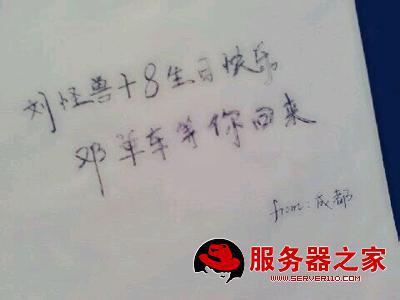 刘怪兽+8生日快乐
邓单车等你回来
from:成都
服务器之家
WWW.SERVER110.COM